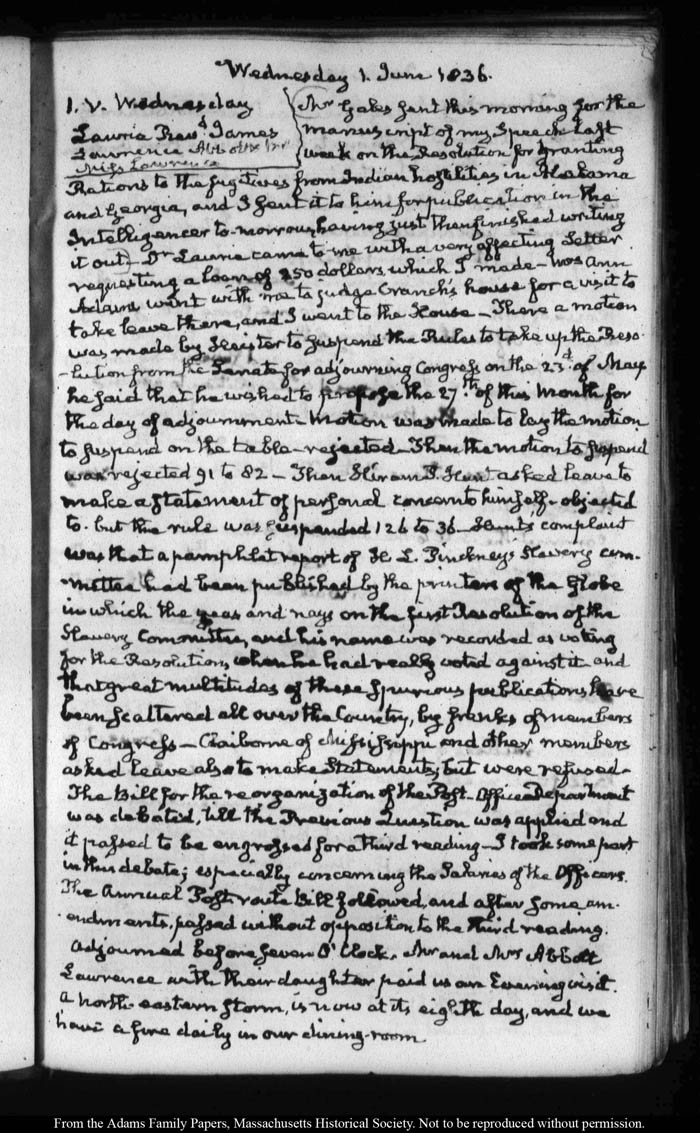 Wednesday 1. June 1836.
1. V. Wednesday
Lawrie Revd. James
Lawrence Abbott Mr
Miss Lawrence
Mr Gales sent this morning for the
manuscript of my Speech last
week on the Resolution for granting
Rations to the fugitives from Indian hostilities in Alabama
and Georgia, and I sent it to him for publication in the
Intelligencer to-morrow, having just then finished writing
it out. Dr Laurie came to me with a very affecting Letter
requesting a loan of 250 dollars, which I made—Mrs Ann
Adams went with me to judge Cranch's house for a visit to
take leave there, and I went to the House—There a motion
was made by to suspend the Rules to take up the Reso-
-lution from the Senate for adjourning Congress on the 23d. of May
he said that he wished to propose the 27.th of this Month for
the day of adjournment—Motion was made to lay the motion
to suspend on the table—rejected—Then the motion to suspend
was rejected 91 to 82—Then Hiram P. Hunt asked leave to
make a statement of personal concern to himself—objected
to. but the rule was suspended 126 to 36—Hunt's complaint
was that a pamphlet report of H. L. Pinckney's Slavery com-
-mittee had been published by the printers of the Globe
in which the yeas and nays on the first Resolution of the
Slavery Committee, and his name was recorded as voting
for the Resolution, when he had really voted against it—and
that great multitudes of these spurious publications have
been scattered all over the Country, by franks of members
of Congress—Claiborne of Mississippi and other members
asked leave also to make Statements, but were refused—
The Bill for the reorganization of the Post-Office Department
was debated, till the Previous Question was applied and
it passed to be engrossed for a third reading—I took some part
in this debate; especially concerning the Salaries of the Officers.
The Annual Post-route Bill followed, and after some am-
-endments, passed without opposition to the third reading.
Adjourned before seven O'Clock. Mr and Mrs Abbott
Lawrence with their daughter paid us an Evening visit.
A north-eastern storm, is now at its eighth day, and we
have a fire daily in our dining-room
From the Adams Family Papers, Massachusetts Historical Society. Not to be reproduced without permission.